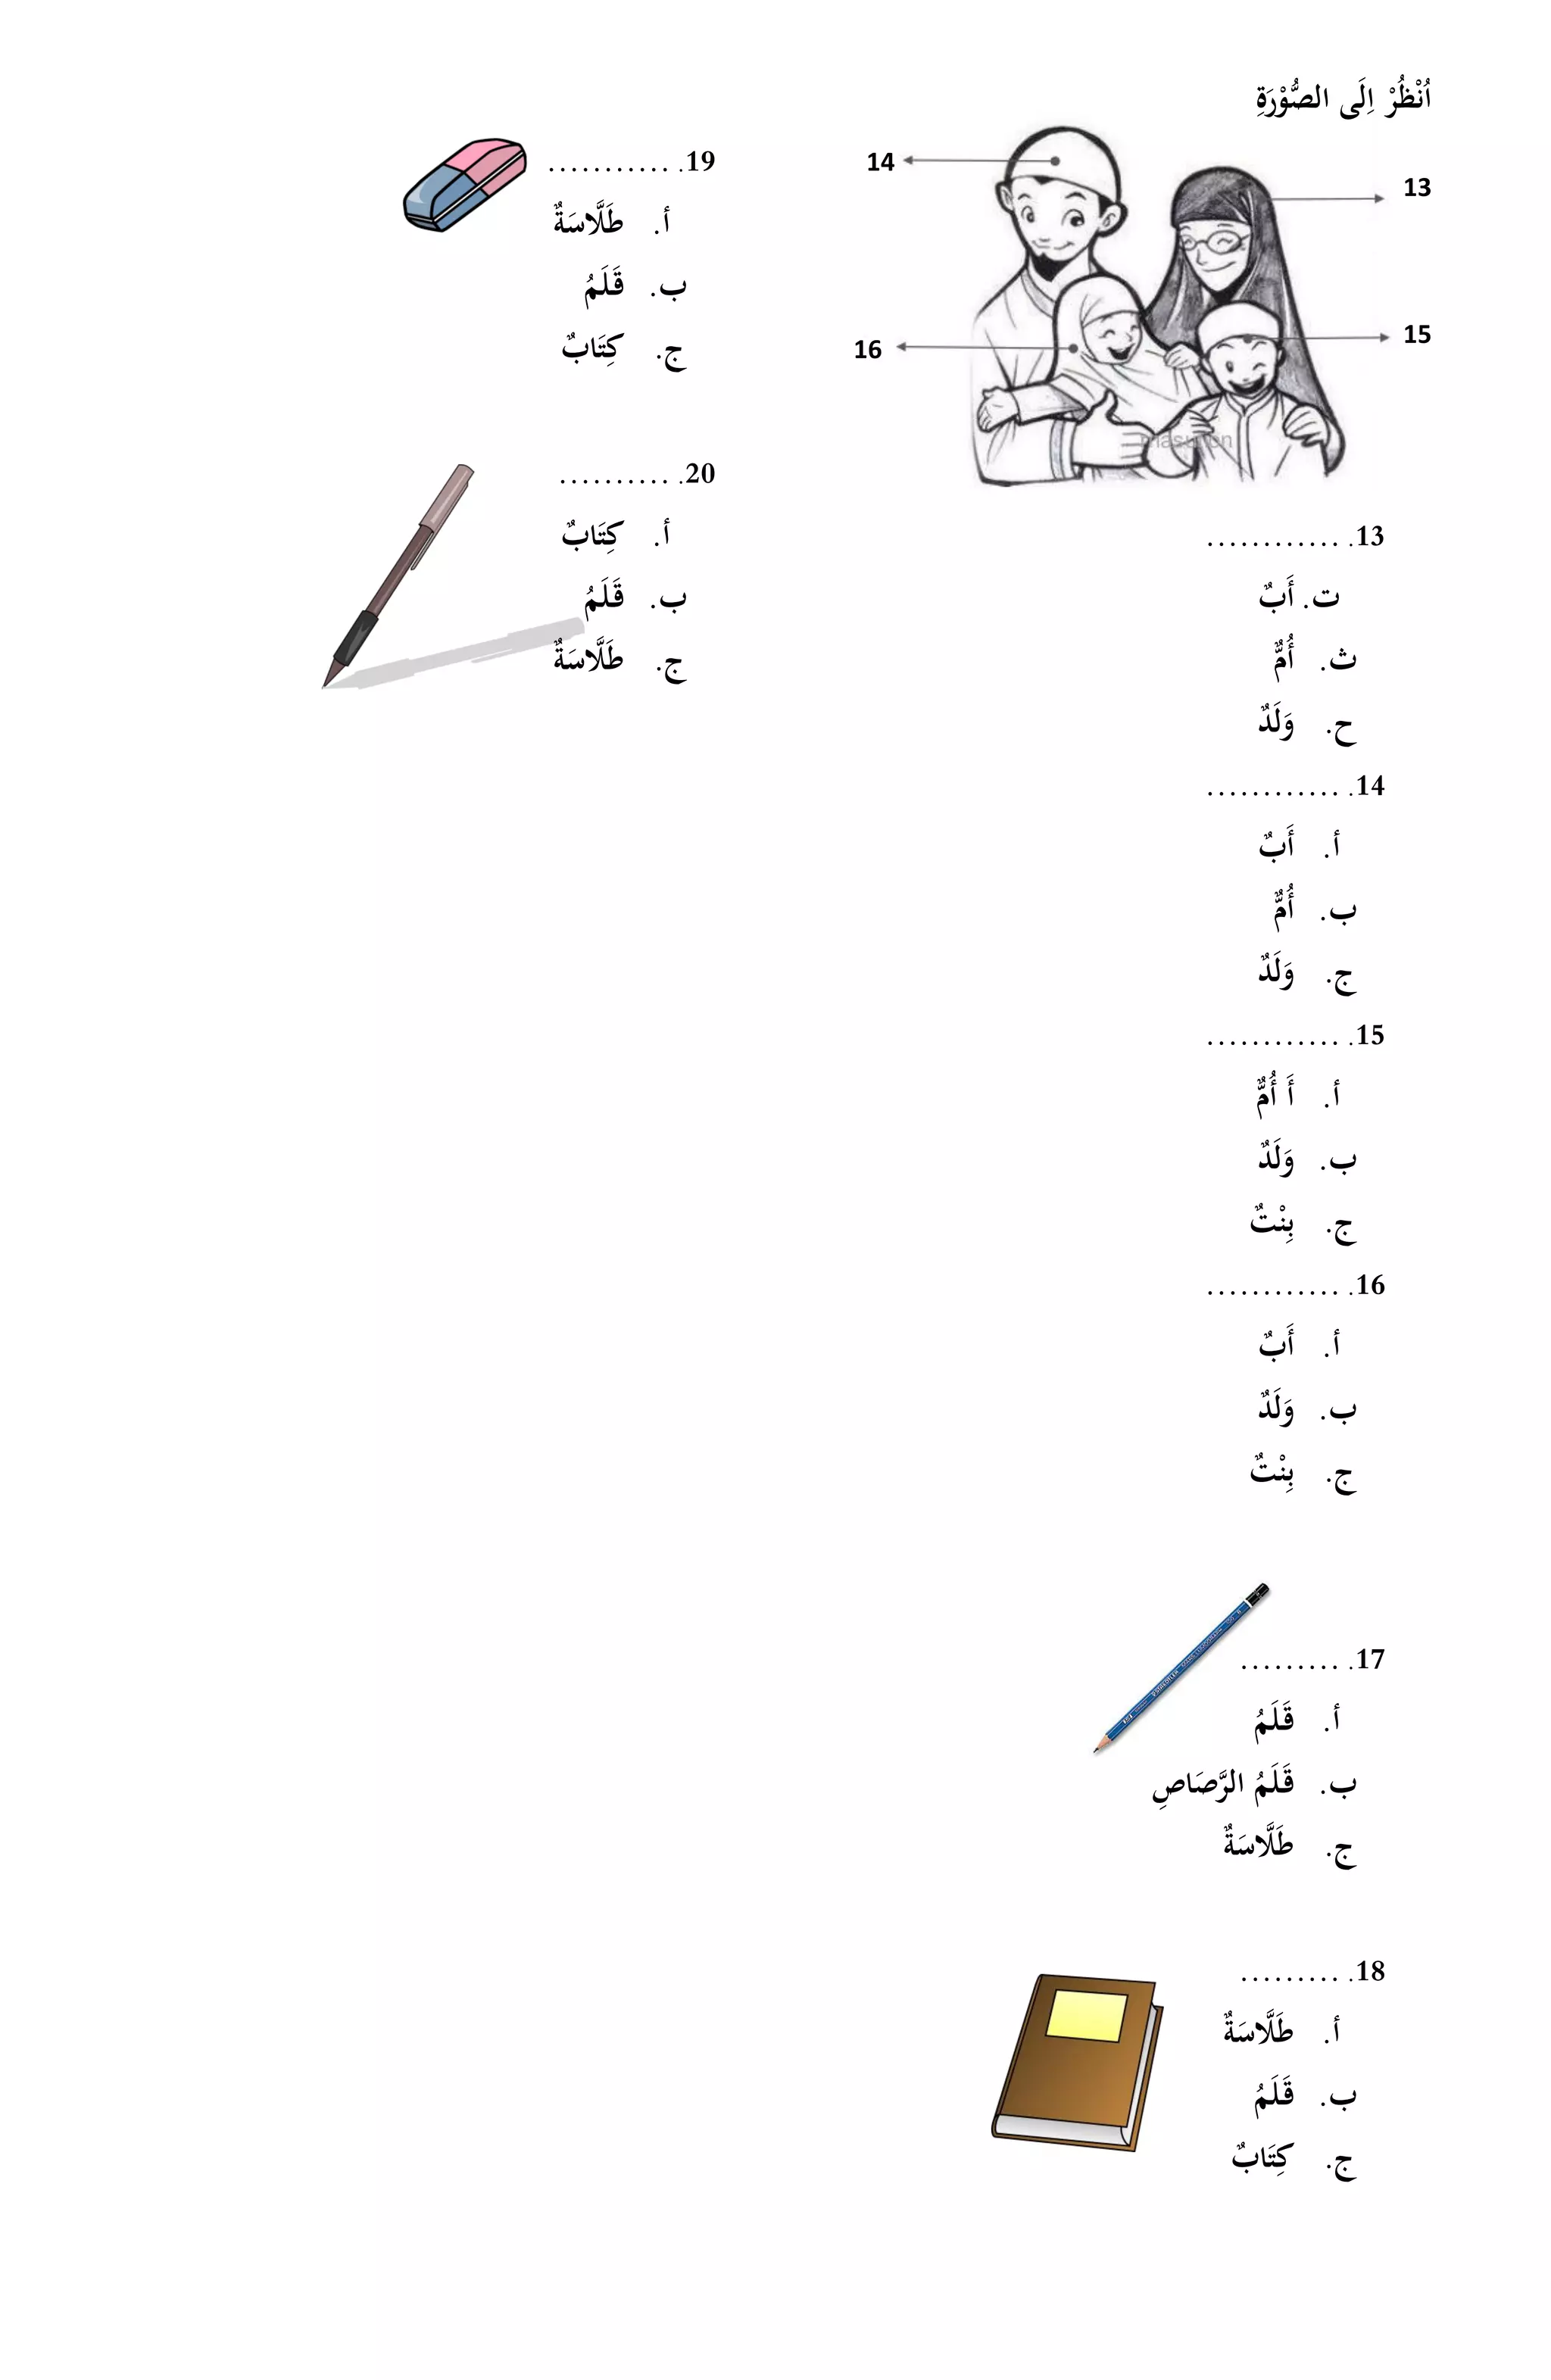 اُنْظُرْ اِلَى الصُّوْرَةِ
14
13
16
15
13. ............
ت. أَبٌ
ث. أُمٌّ
ح. وَلَدٌ
14. ............
أ. أَبٌ
ب. أُمٌّ
ج. وَلَدٌ
15. ............
أ. أَ أُمٌّ
ب. وَلَدٌ
ج. بِنْتٌ
16. ............
أ. أَبٌ
ب. وَلَدٌ
ج. بِنْتٌ
17. .........
أ. قَلَمُ
ب. قَلَمُ الرَّصَاصِ
ج. طَلَّاسَةٌ
18. .........
أ. طَلَّاسَةٌ
ب. قَلَمُ
ج. كِتَابٌ
19. ...........
أ. طَلَّاسَةٌ
ب. قَلَمُ
ج. كِتَابٌ
20. ..........
أ. كِتَابٌ
ب. قَلَمُ
ج. طَلَّاسَةٌ